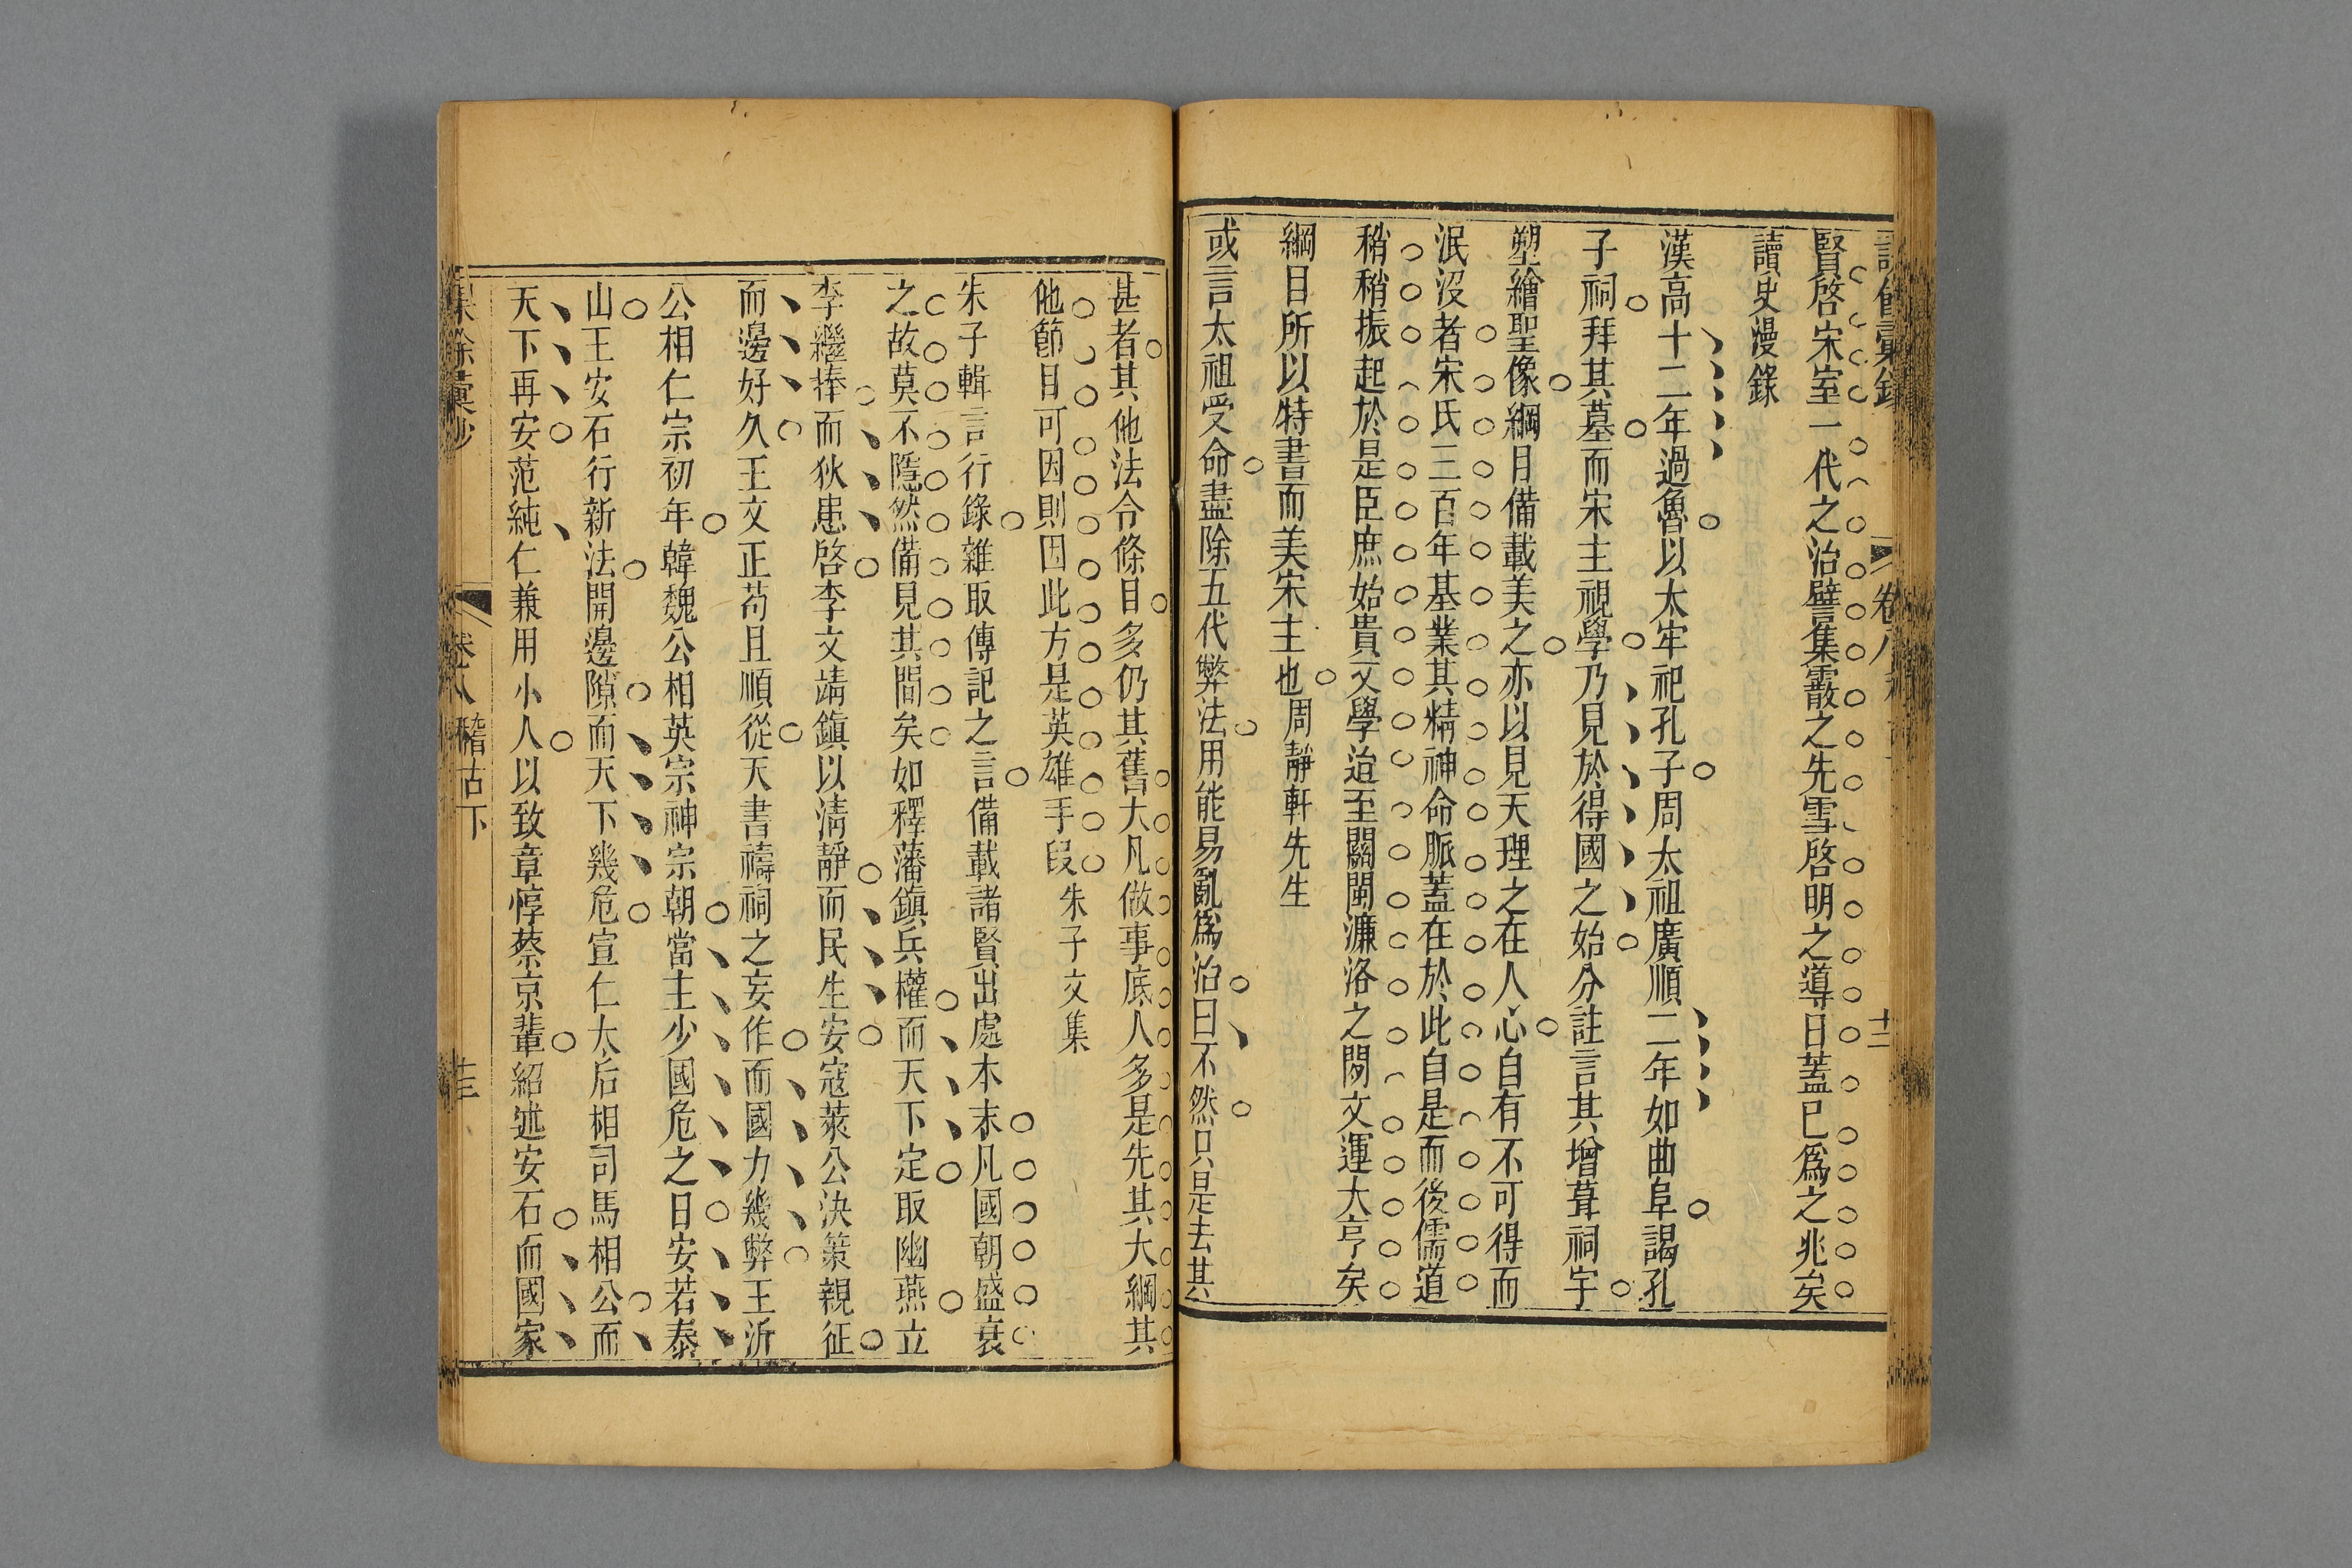 賢啓宋室一代之治譬集霰之先雪啓明之導日蓋已爲之兆矣
讀史漫錄
漢高十二年過魯以太牢祀孔子周太祖廣順二年如曲阜謁孔
子祠拜其墓而宋主視學乃見於得國之始分註言其增葺祠宇
塑繪聖像綱目備載美之亦以見天理之在人心自有不可得而
泯沒者宋氏三百年基業其精神命脈蓋在於此自是而後儒道
稍稍振起於是臣庶始貴文學迨至關閩濂洛之間文運大亨矣
綱目所以特書而美宋主也周靜軒先生
或言太祖受命盡除五代弊法用能易亂爲治曰不然只是去其
甚者其他法令條目多仍其舊大凡做事底人多是先其大綱其
他節目可因則因此方是英雄手段朱子文集
朱子輯言行錄雜取傳記之言備載諸賢出處本末凡國朝盛衰
之故莫不隱然備見其間矣如釋藩鎮兵權而天下定取幽燕立
李繼捧而狄患啓李文靖鎮以清靜而民生安寇萊公決策親征
而邊好久王文正苟且順從天書禱祠之妄作而國力幾弊王沂
公相仁宗初年韓魏公相英宗神宗朝當主少國危之日安若泰
山王安石行新法開邊隙而天下幾危宣仁太后相司馬相公而
天下再安范純仁兼用小人以致章惇蔡京輩紹述安石而國家
卷八 稽古下
十三